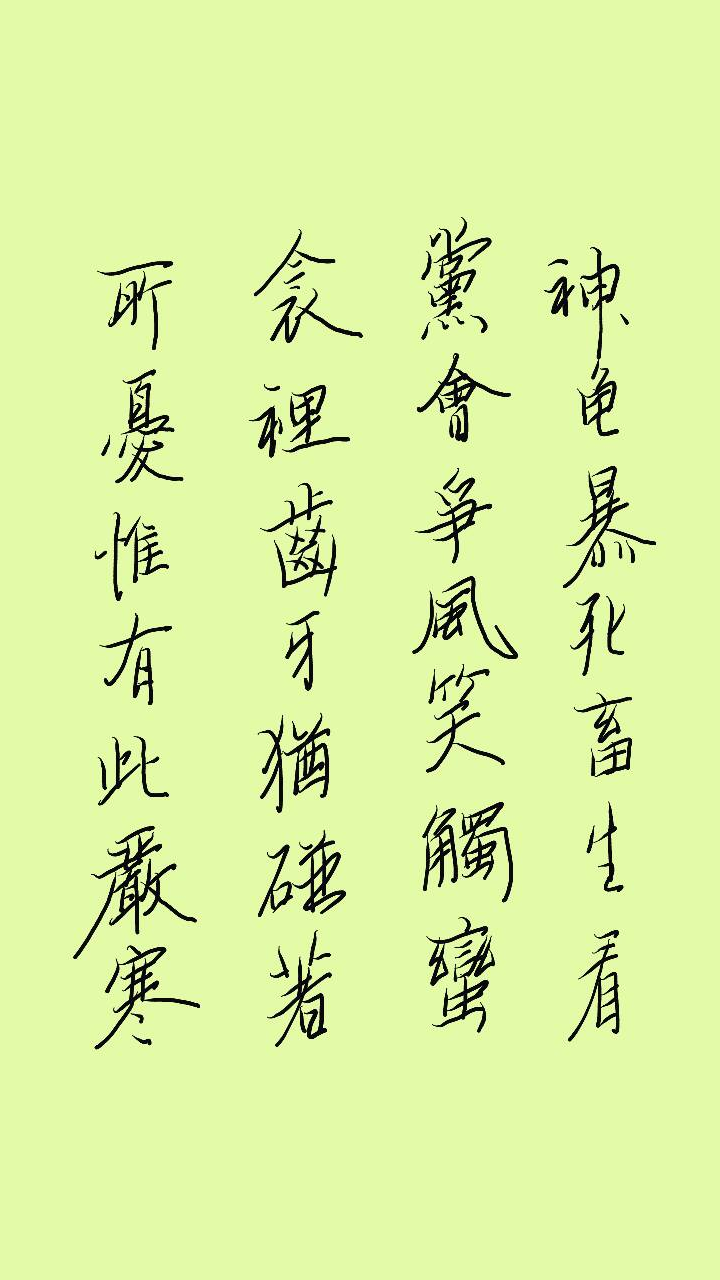 神龟暴死畜生看
黨會爭風笑觸蠻
衾裡齒牙猶碰著
所憂惟有此嚴寒